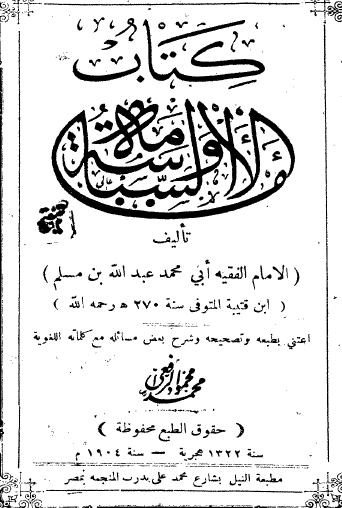 كتاب
الامامة والسياسة
تأليف
( الامام الفقيه أبي محمد عبد الله بن مسلم )
( ابن قتيبة المتوفى سنة ٢٧٠ ه رحمه الله )
اعتني بطبعه وتصحيحه وشرح بعض مسائله مع كلماته اللغوية
محمد محمود الرافعي
( حقوق الطبع محفوظة )
سنة ١٣٢٢ هجرية — سنة ١٩٠٤ م
مطبعة النيل بشارع محمد علي بدرب المنجمه بمصر